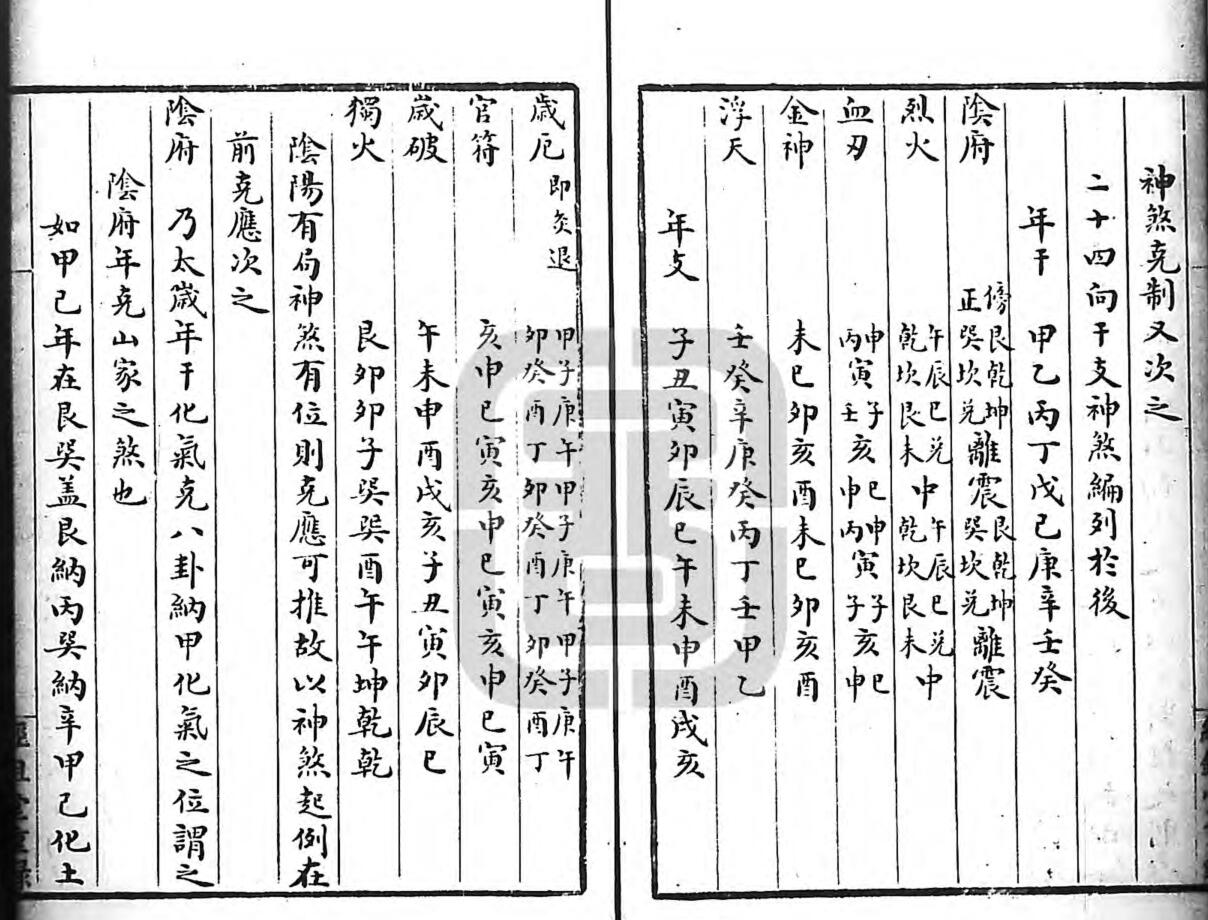 神煞克制又次之
二十四向干支神煞編列於後
年干 甲乙丙丁戊己庚辛壬癸
陰府 傍艮乾坤 正巽坎兌 離震 艮乾坤 巽坎兌 離震
烈火 午辰巳兌 乾坎艮未 中 午辰巳兌 乾坎艮未 中
血刃 申丙 寅 子壬 亥 巳申 申丙 寅 子子 亥 巳申
金神 未巳卯亥酉未巳卯亥酉
浮天 壬癸辛庚癸丙丁壬甲乙
年支 子丑寅卯辰巳午未申酉戌亥
歲厄 即灸退 甲子庚午甲子庚午甲子庚午 卯癸酉丁卯癸酉丁卯癸酉丁
官符 亥申巳寅亥申巳寅亥申巳寅
歲破 午未申酉戌亥子丑寅卯辰巳
獨火 艮卯卯子巽巽酉午午坤乾乾
陰陽有局神煞有位則克應可推故以神煞起例在
前克應次之
陰府 乃太歲年干化氣克八卦納甲化氣之位謂之
陰府年克山家之煞也
如甲己年在艮巽盖艮納丙巽納辛甲己化土